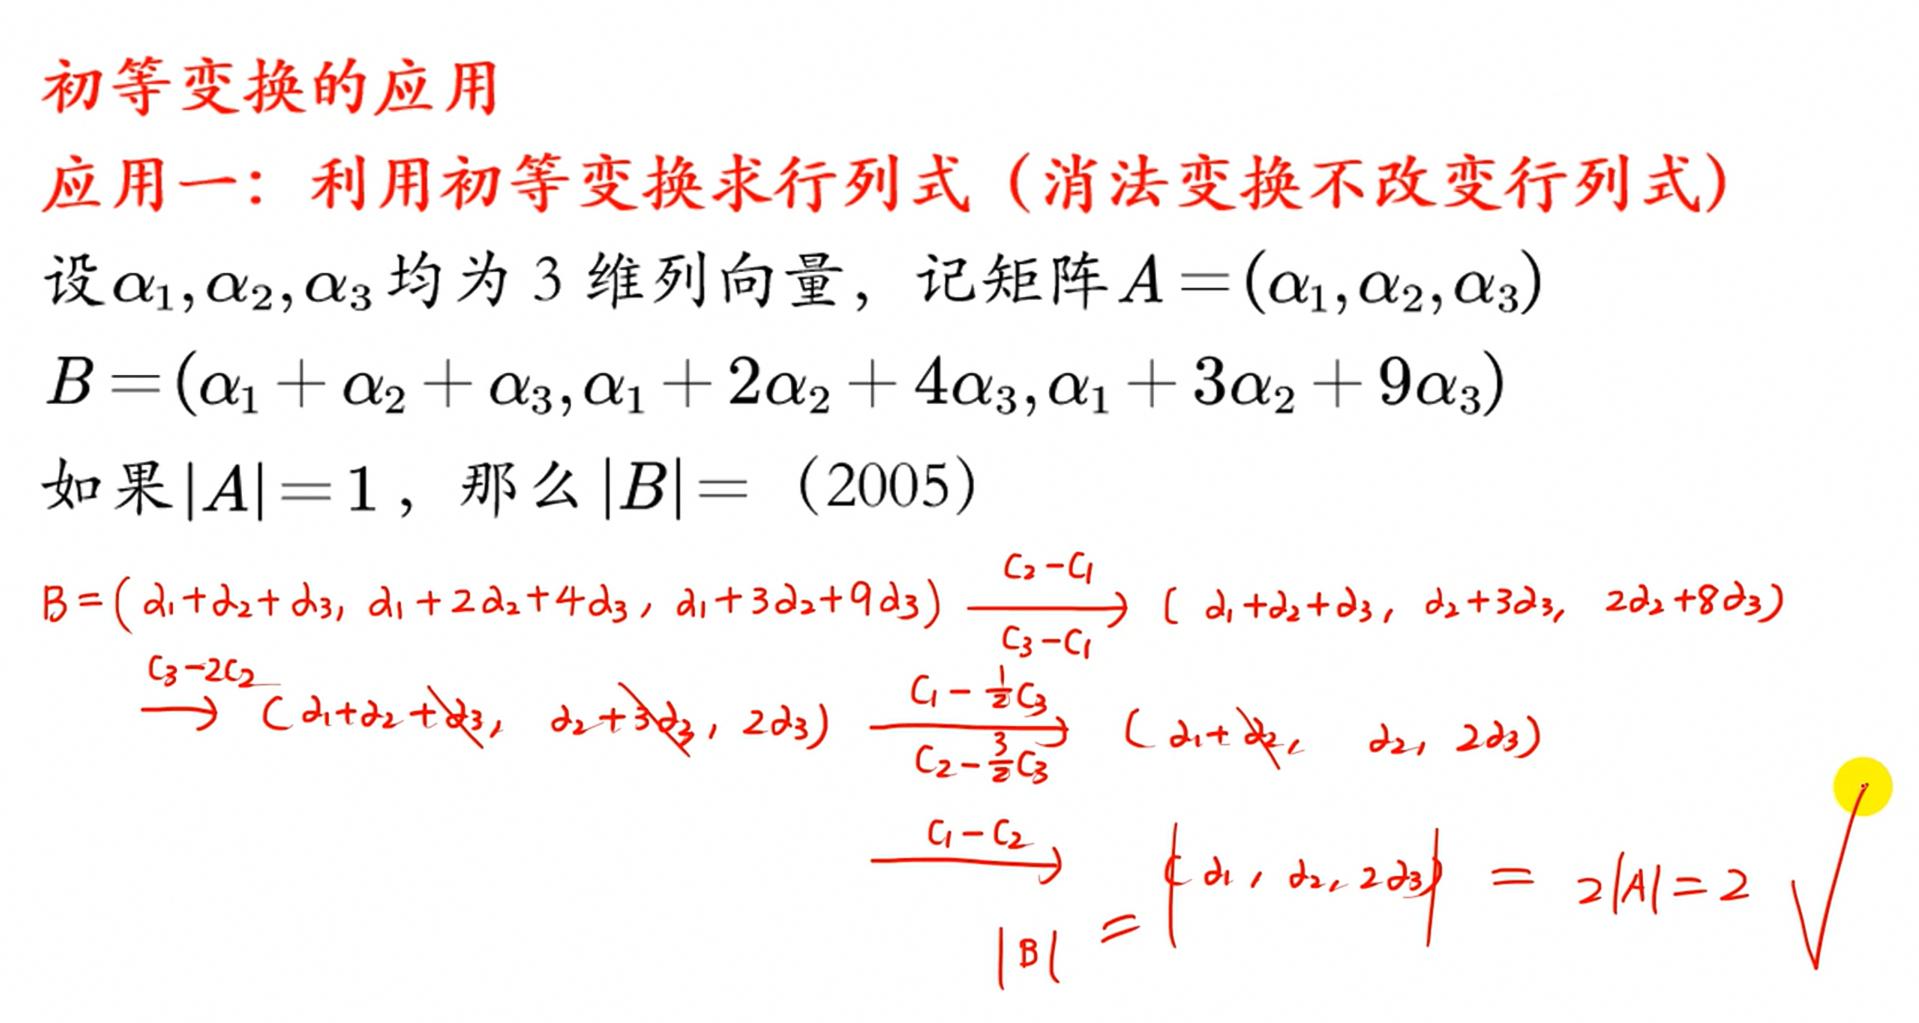 初等变换的应用
应用一：利用初等变换求行列式（消法变换不改变行列式）
设α₁,α₂,α₃均为 3 维列向量，记矩阵A=(α₁,α₂,α₃)
B=(α₁+α₂+α₃,α₁+2α₂+4α₃,α₁+3α₂+9α₃)
如果|A|=1，那么|B|=（2005）
B=(α₁+α₂+α₃, α₁+2α₂+4α₃, α₁+3α₂+9α₃) C₂-C₁ C₃-C₁ → (α₁+α₂+α₃, α₂+3α₃, 2α₂+8α₃)
C₃-2C₂ → (α₁+α₂+α₃, α₂+3α₃, 2α₃) C₁-½C₃ C₂-3/2C₃ → (α₁+α₂, α₂, 2α₃)
C₁-C₂ →
|B| = |(α₁, α₂, 2α₃)| = 2|A|=2 √